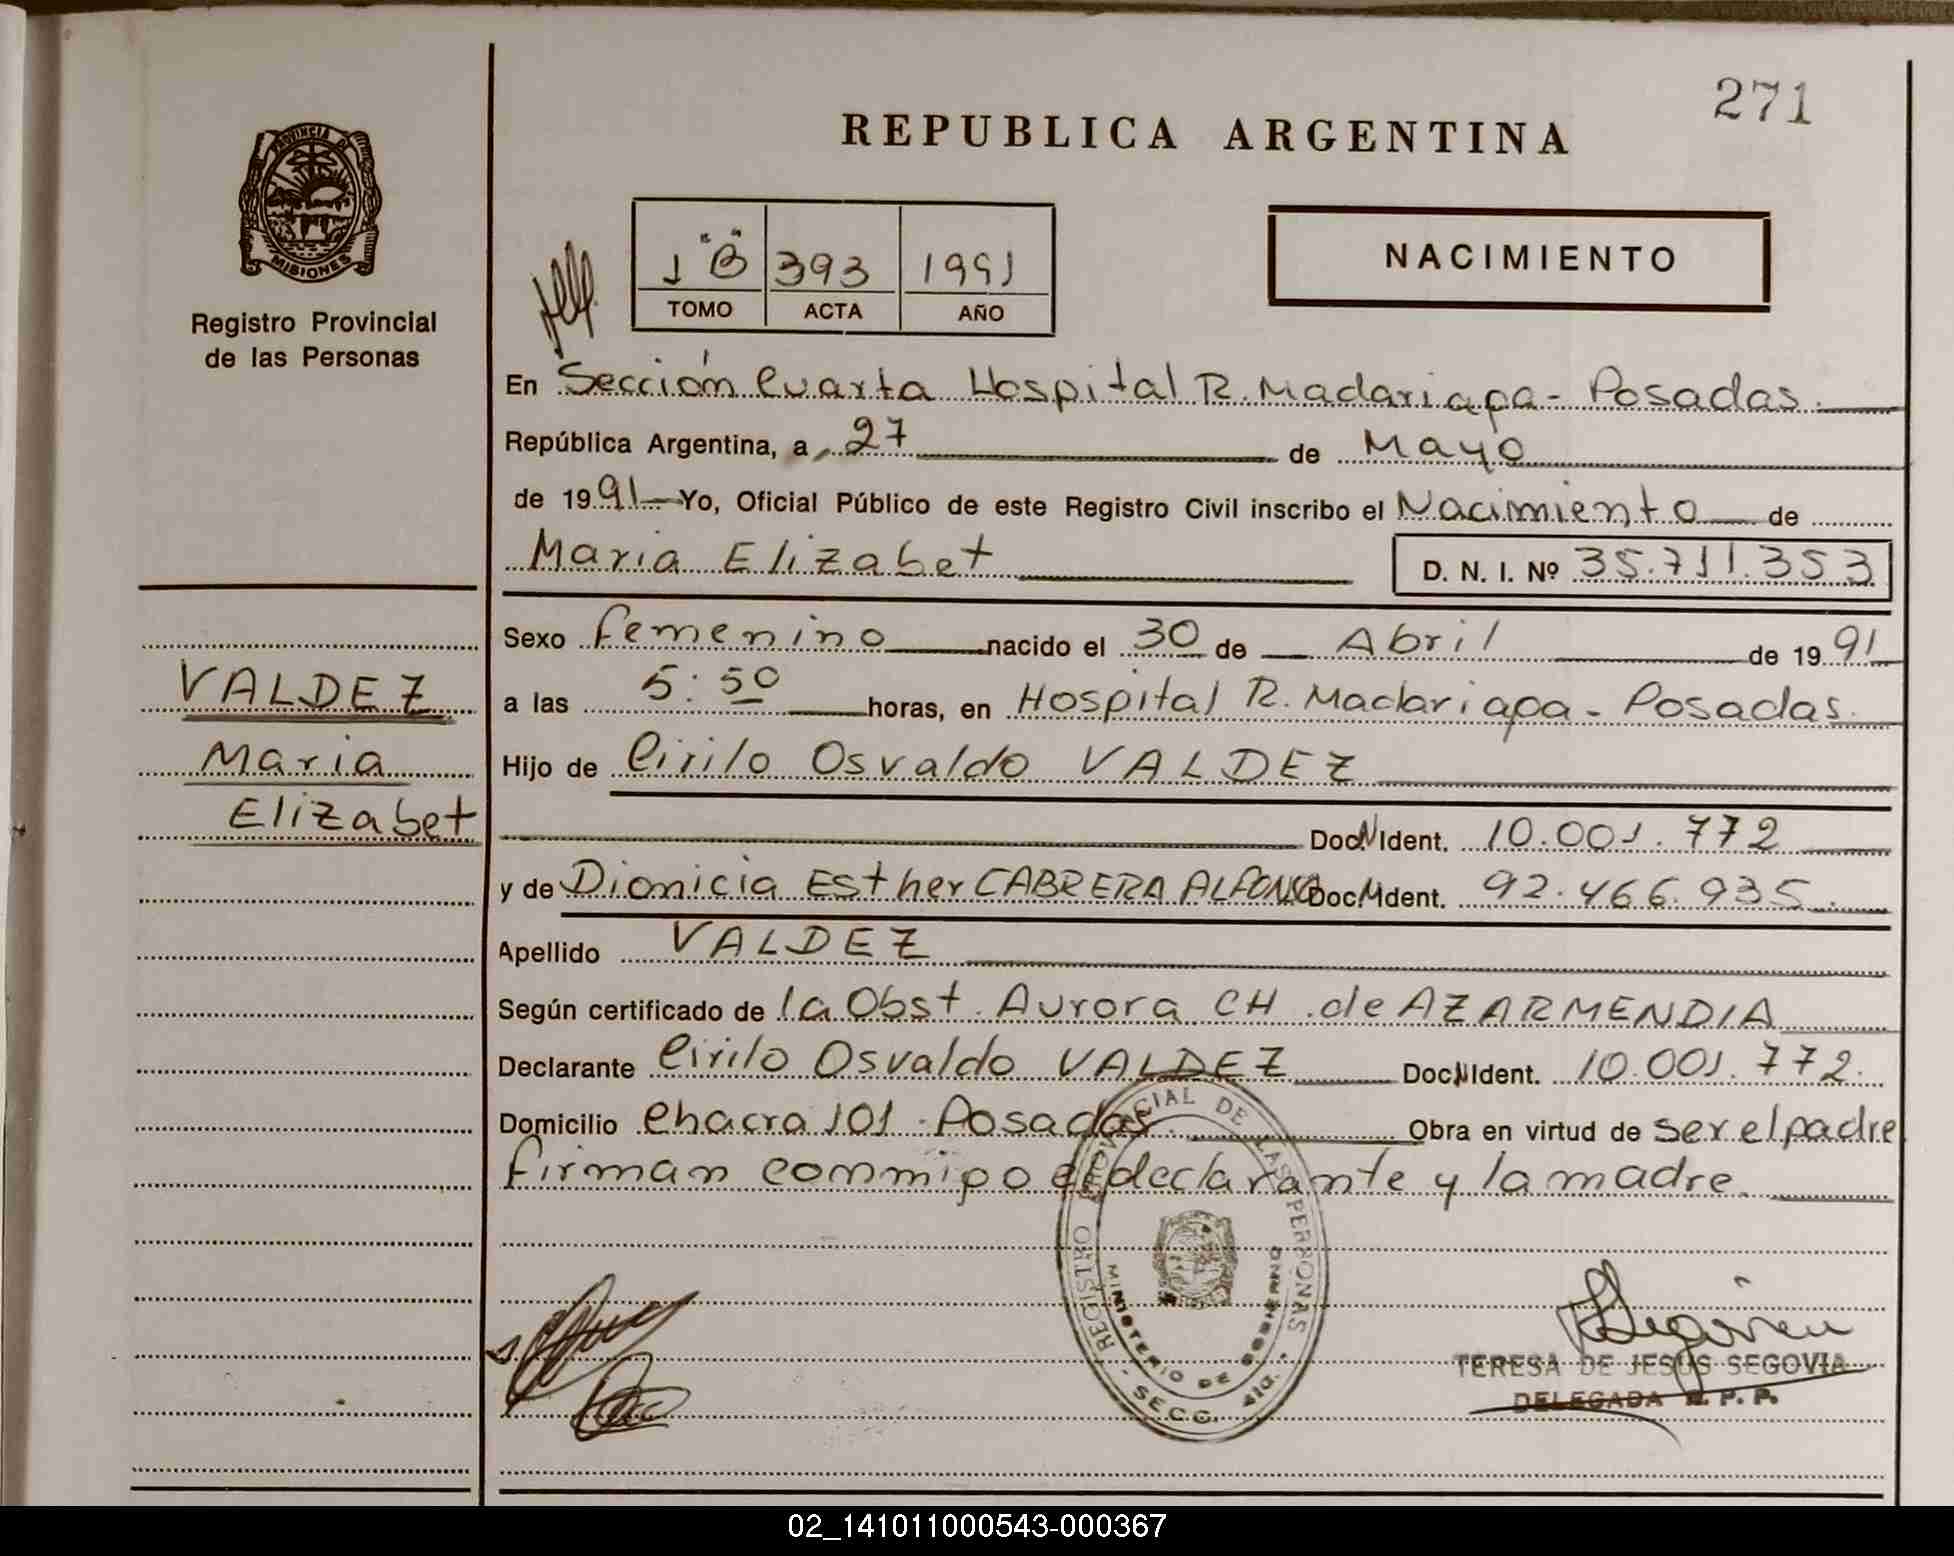 271
REPUBLICA ARGENTINA
PROVINCIA DE
MISIONES
Registro Provincial
de las Personas
1 "B" 393 1991
TOMO ACTA AÑO
NACIMIENTO
En Sección Cuarta Hospital R. Madariaga - Posadas.
República Argentina, a 27 de Mayo
de 1991 Yo, Oficial Público de este Registro Civil inscribo el Nacimiento de
Maria Elizabet D. N. I. Nº 35.711.353
Sexo femenino nacido el 30 de Abril de 1991
VALDEZ
Maria
Elizabet
a las 5:50 horas, en Hospital R. Madariaga - Posadas.
Hijo de Cirilo Osvaldo VALDEZ
Doc.N Ident. 10.001.772
y de Dionicia Esther CABRERA ALFONSO Doc.N Ident. 92.466.935.
Apellido VALDEZ
Según certificado de la Obst. Aurora CH. de AZARMENDIA
Declarante Cirilo Osvaldo VALDEZ Doc.N Ident. 10.001.772.
Domicilio Chacra 101 - Posadas. Obra en virtud de ser el padre
firman conmigo el declarante y la madre.
REGISTRO PROVINCIAL DE LAS PERSONAS
MINISTERIO DE GOBIERNO
- SECC. 4ta. -
TERESA DE JESUS SEGOVIA
DELEGADA R. P. P.
02_141011000543-000367